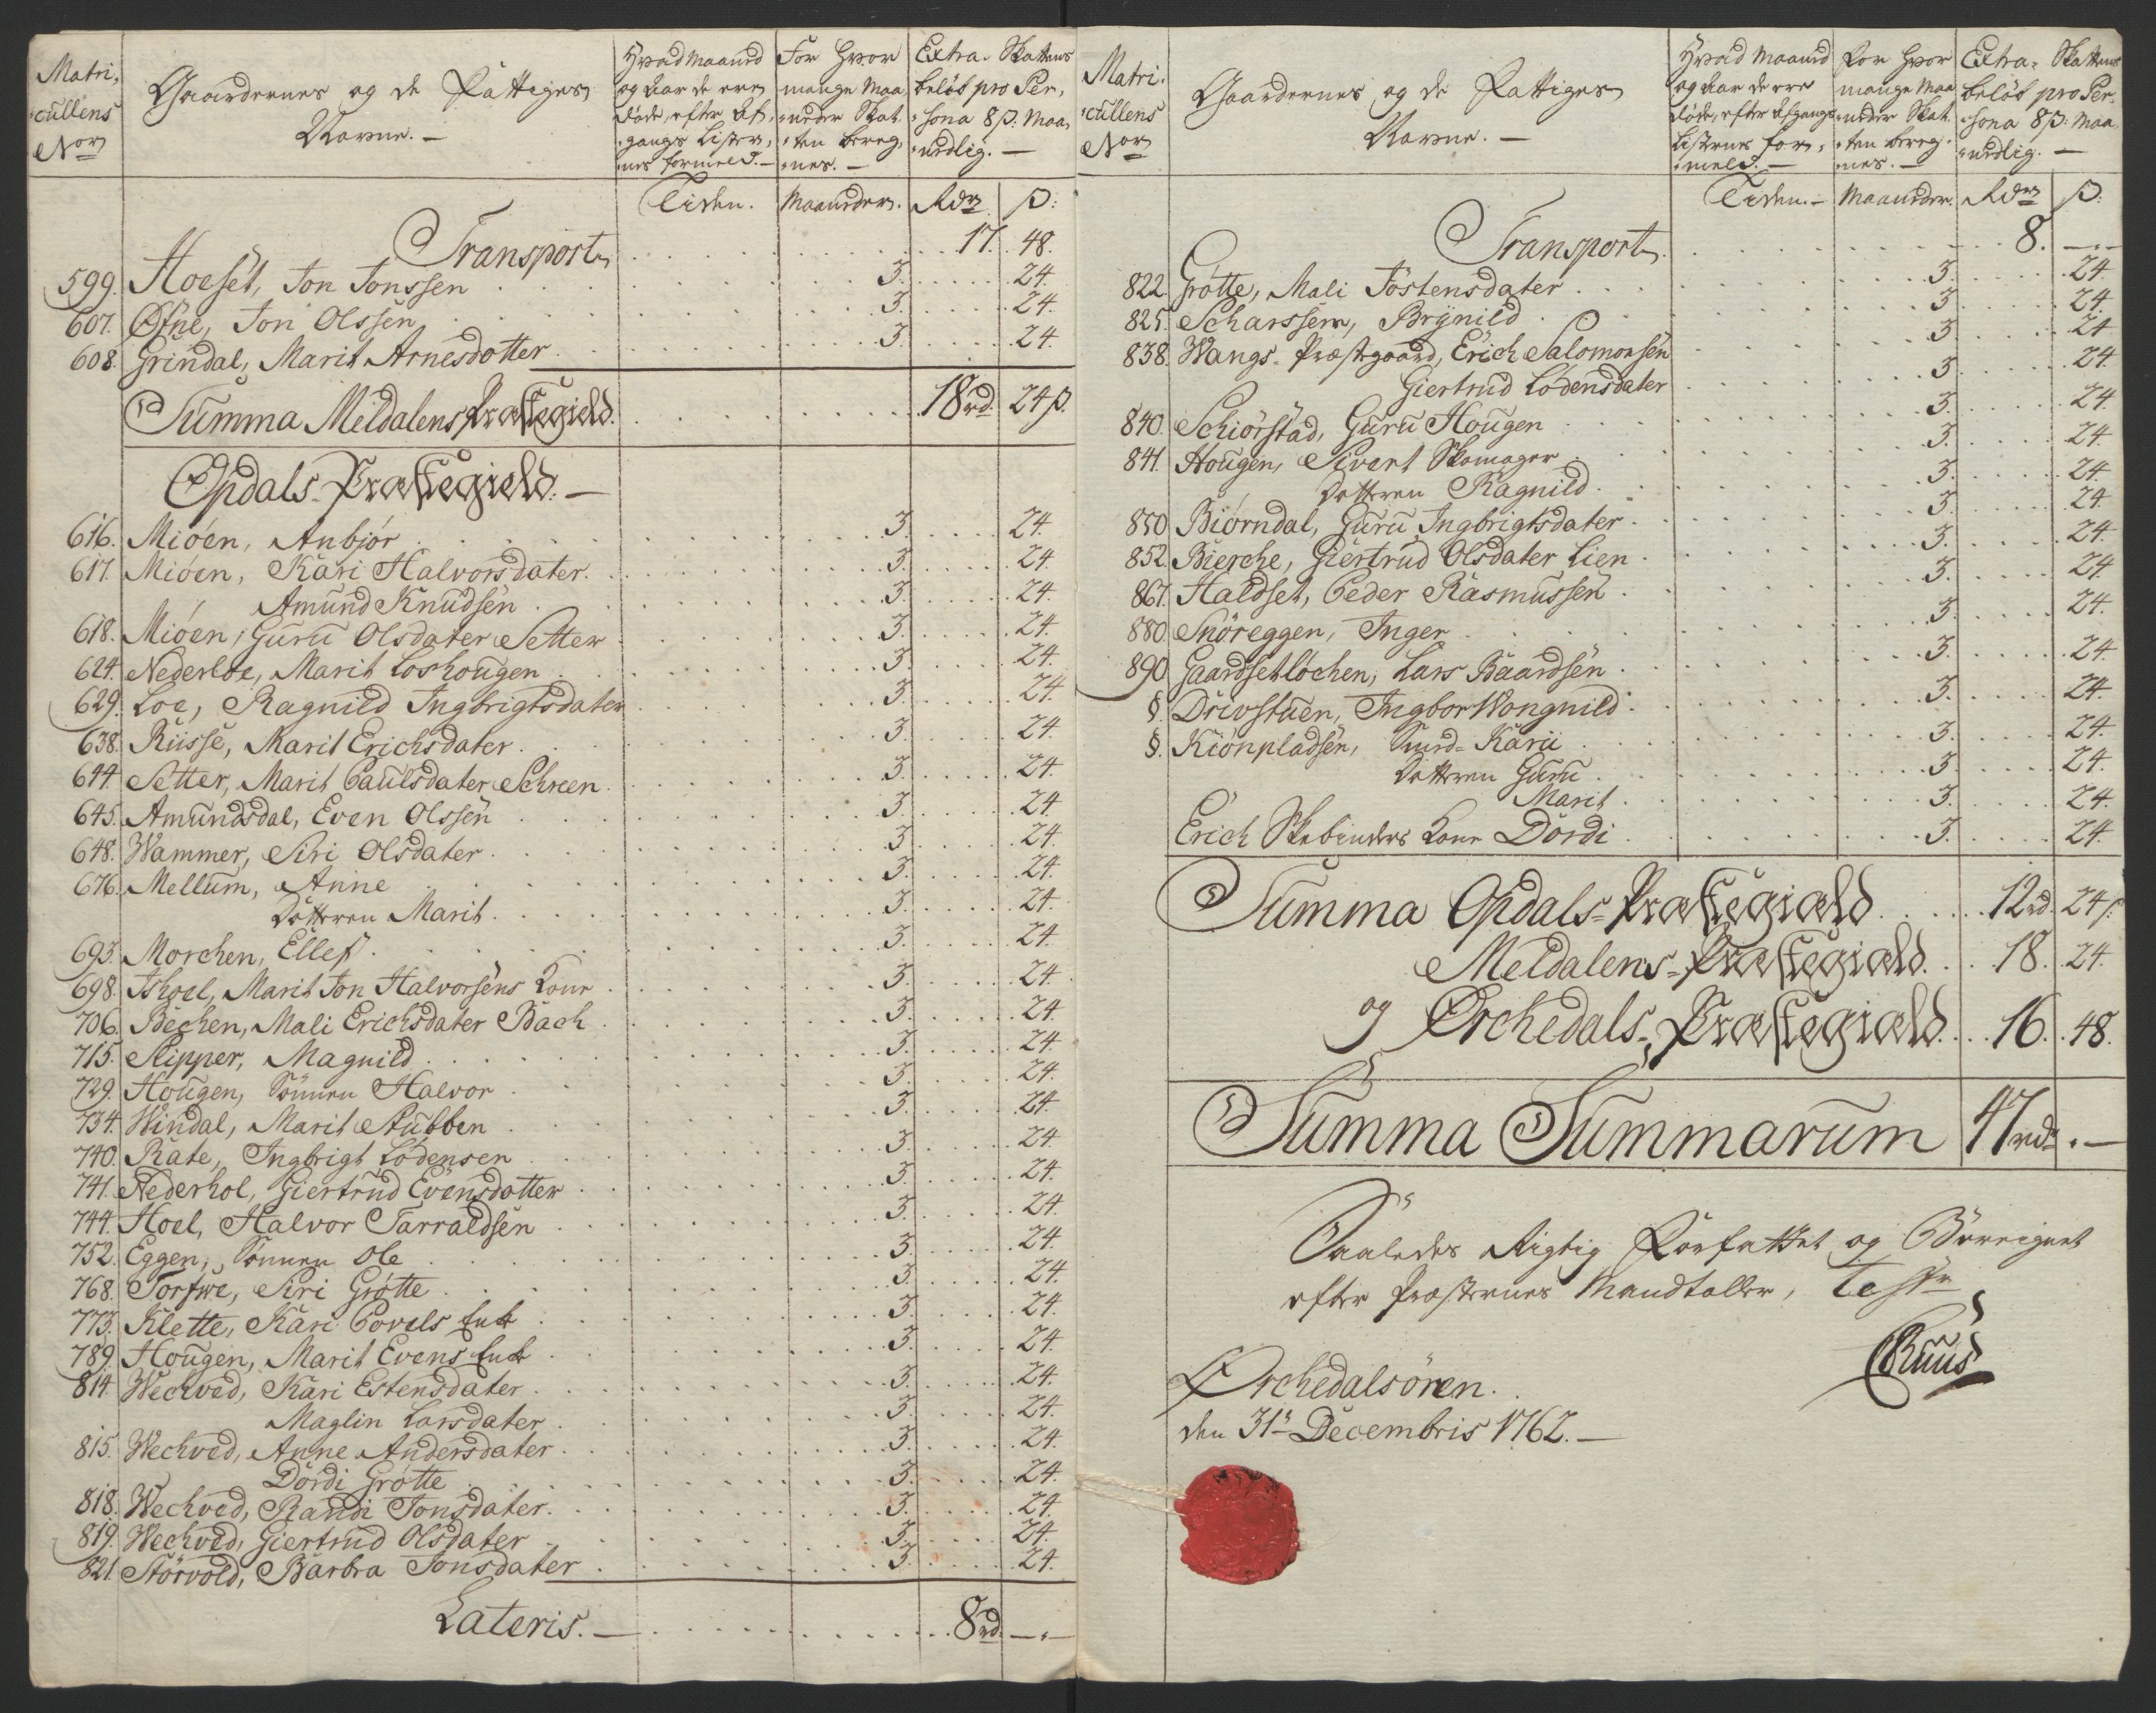 Matri-
cullens
No
Gaardernes og de Fattiges
Navne. —
Hvad Maaned
og Aar de ere
døde, efter Af-
gangs Lister-
nes formeld. —
For hvor
mange Maa-
neder Skat-
ten bereg-
nes. —
Extra-Skattens
beløb pro Per-
sona 8 ß: Maa-
nedlig. —
Tiden. Maaneder. Rdr ß:
Transport 17. 48.
599. Hoeset, Jon Jonssen 3. 24.
607. Øfne, Jon Olssen 3. 24.
608. Grindal, Marit Arnesdotter 3. 24.
Summa Meldalens Præstegield. 18rd. 24ß.
Opdals-Præstegield. —
616. Mioen, Anbjør 3. 24.
617. Mioen, Kari Halvorsdater. 3. 24.
Amund Knudsen 3. 24.
618. Mioen, Guru Olsdater Setter 3. 24.
624. Nederloe, Marit Loshougen 3. 24.
629. Loe, Ragnild Ingbrigtsdater 3. 24.
638. Riisse, Marit Erichsdater. 3. 24.
644. Setter, Marit Paulsdater Schreen. 3. 24.
645. Amundsdal, Even Olssen 3. 24.
648. Wammer, Siri Olsdater. 3. 24.
676. Mellum, Anne 3. 24.
Datteren Marit. 3. 24.
693. Morchen, Ellef. 3. 24.
698. Ishoel, Marit Jon Halvorsens Kone 3. 24.
706. Bechen, Mali Erichsdater Bach 3. 24.
715. Slipper, Magnild. 3. 24.
729. Hougen, Sönnen Halvor 3. 24.
734. Windal, Marit Stubben 3. 24.
740. Rate, Ingbrigt Lodensen 3. 24.
741. Nederhol, Giertrud Evensdotter 3. 24.
744. Hoel, Halvor Tarraldsen 3. 24.
752. Eggen, Sönnen Ole 3. 24.
768. Torfwe, Siri Grøtte 3. 24.
773. Klette, Kari Povels Enk 3. 24.
789. Hougen, Marit Evens Enk 3. 24.
814. Wechved, Kari Estensdater. 3. 24.
Maglin Larsdater 3. 24.
815. Wechved, Anne Andersdater 3. 24.
Dordi Grøtte 3. 24.
818. Wechved, Randi Jonsdater. 3. 24.
819. Wechved, Giertrud Olsdater 3. 24.
821. Störvold, Barbra Jonsdater 3. 24.
Lateris. — 8rd. —
Matri-
cullens
No
Gaardernes og de Fattiges
Navne. —
Hvad Maaned
og Aar de ere
døde, efter Afgangs
Listernes for-
meld. —
For hvor
mange Maa-
neder Skat-
ten bereg-
nes. —
Extra-Skattens
beløb pro Per-
sona 8ß: Maa-
nedlig. —
Tiden. — Maaneder. Rdr ß:
Transport 8. —
822. Grøtte, Mali Jöstensdater 3. 24.
825. Scharssem, Brynild 3. 24.
838. Wangs-Præstegaard, Erich Salomonsen 3. 24
Giertrud Lodensdater 3. 24.
840. Schiørstad, Guru Hougen 3. 24.
841. Hougen, Sivert Skomager 3. 24.
Datteren Ragnild. 3. 24.
850. Biørndal, Guru Ingbrigtsdater. 3. 24.
852. Bierche, Giertrud Olsdater Lien 3. 24.
867. Haldset, Peder Rasmussen 3. 24.
880. Snöreggen, Inger 3. 24.
890. Gaardsetløchen, Lars Baardsen 3. 24.
§. Drivstuen, Ingbor Wongnild 3. 24.
§. Kiönpladsen, Smed-Karii 3. 24.
Datteren Guru 3. 24.
Marit. 3. 24.
Erich Skobinders Kone Dördi 3. 24.
Summa Opdals-Præstegiæld 12rd. 24ß.
Meldalens-Præstegiæld. 18. 24.
og Orchedals-Præstegiæld. 16. 48.
Summa Summarum 47rdr. —
Saaledes Rigtig Forfattet og Beregnet
efter Præsternes Mandtaller, Test
Ruus
Orchedalsören.
den 31t Decembris 1762. —